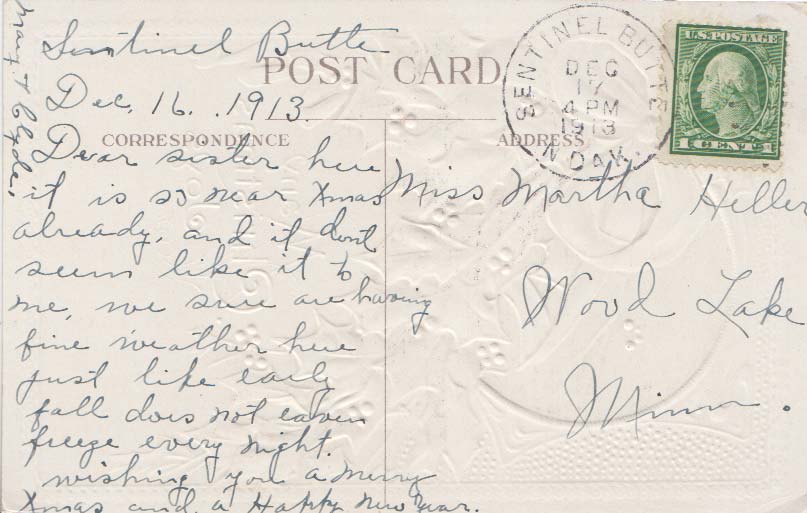 Sentinel Butte
POST CARD
Dec. 16. 1913
CORRESPONDENCE
Dear sister here
it is so near Xmas
already, and it dont
seem like it to
me, we sure are having
fine weather here
just like early
fall does not eaven
freeze every night.
wishing you a merry
Xmas and a Happy New Year.
Mary & Clyde.
SENTINEL BUTTE
DEC
17
4 PM
1913
N. DAK.
U.S. POSTAGE
1 CENT 1
ADDRESS
Miss Martha Heller
Wood Lake
Minn.